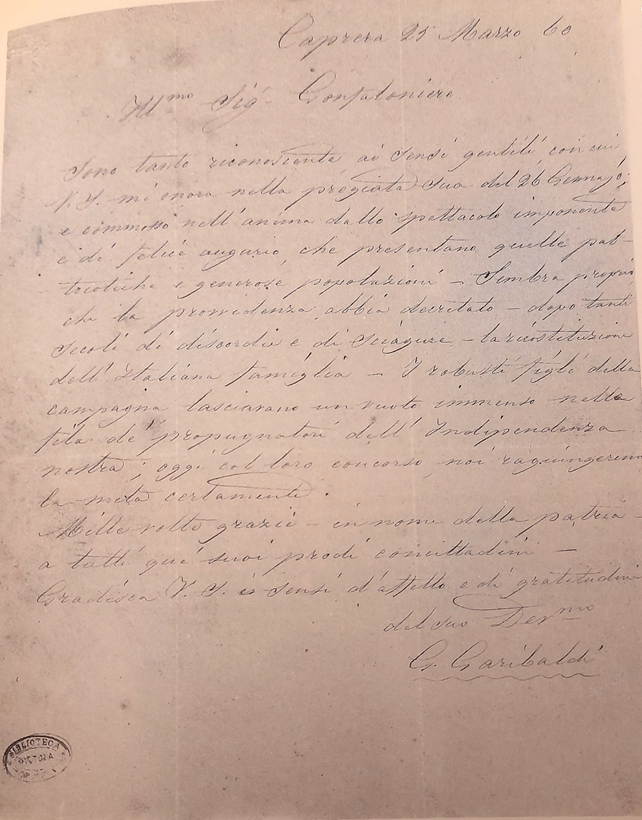 Caprera 25 Marzo 60
Ill.mo Sig.r Gonfaloniere
Sono tanto riconoscente ai sensi gentili con cui
V. S. mi onora nella pregiata sua del 26 Gennajo;
e commosso nell'anima dallo spettacolo imponente
e di felice augurio, che presentano quelle pat-
triotiche e generose popolazioni - Sembra proprio
che la provvidenza abbia decretato - dopo tanti
secoli di discordie e di sciagure - la ricostituzione
dell'Italiana famiglia - I robusti figli della
campagna lasciavano un vuoto immenso nelle
fila de' propugnatori dell'Indipendenza
nostra; oggi col loro concorso, noi raguingeremo
la meta certamente.
Mille volte grazie - in nome della patria -
a tutti que' suoi prodi concittadini -
Gradisca V. S. i sensi d'affetto e di gratitudine
del suo Dev.mo
G. Garibaldi
BIBLIOTECA